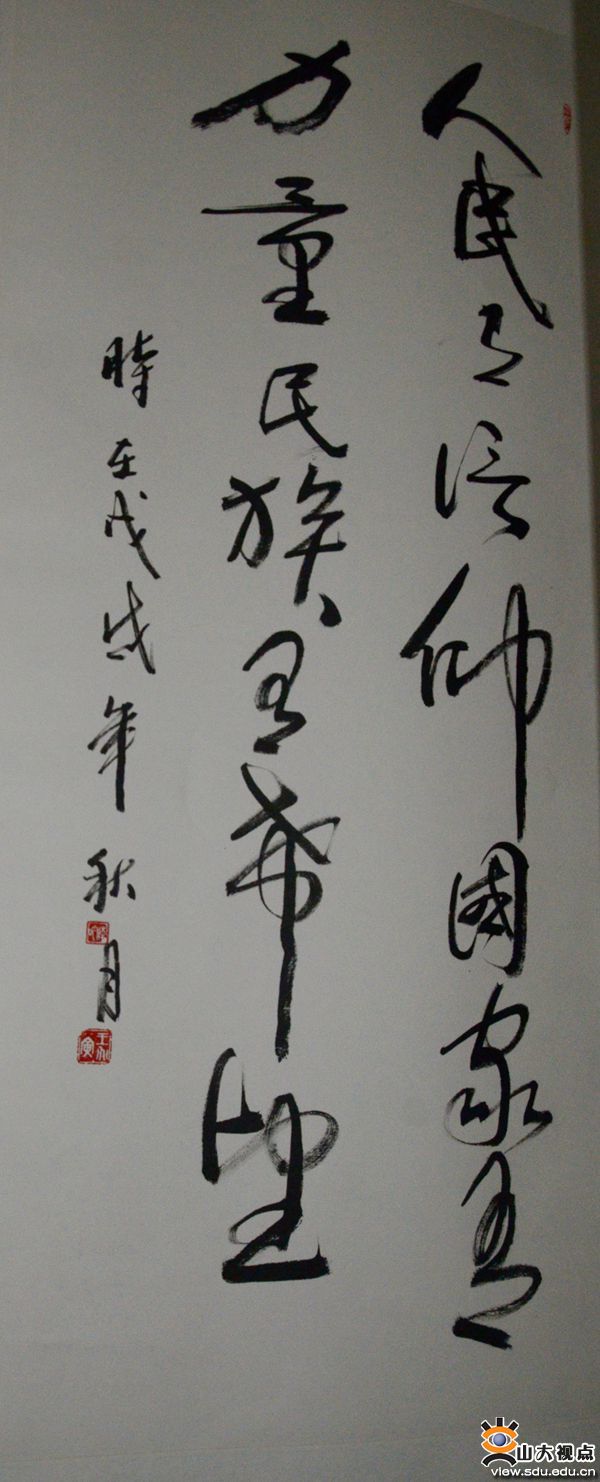 人民有信仰国家有
力量民族有希望
時在戊戌年秋月
山大视点
view.sdu.edu.cn